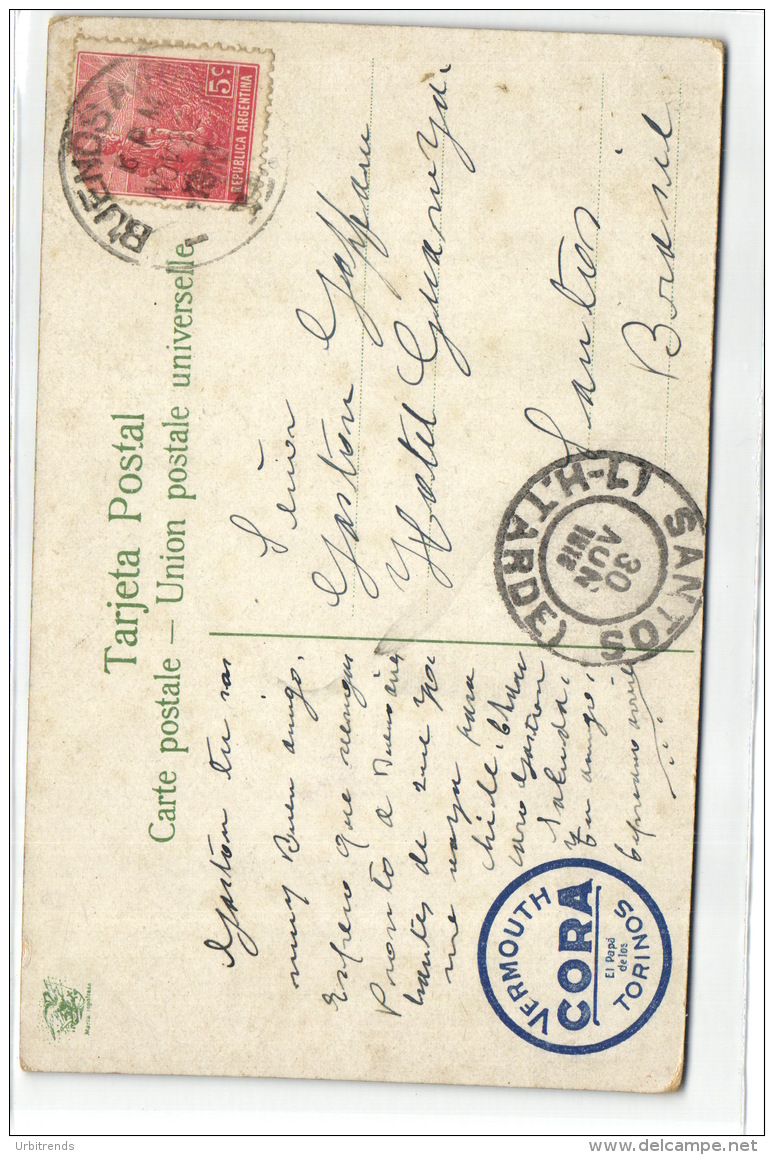 Tarjeta Postal
Carte postale — Union postale universelle
5c
REPUBLICA ARGENTINA
BUENOS A
6 PM
Señor
Gaston
Hotel Guaruja
Santos
Brasil
SANTOS
(1-H.TARDE)
30
JUN
1912
Gaston tu sos
muy Buen amigo.
Espero que vengas
Pronto a Buenos aires
hantes de que yo
me vaya para
chile.
caro Gaston
Saluda.
Tu amigo.
VERMOUTH
CORA
El Papá
de los
TORINOS
Marca registrada
Urbitrends
www.delcampe.net